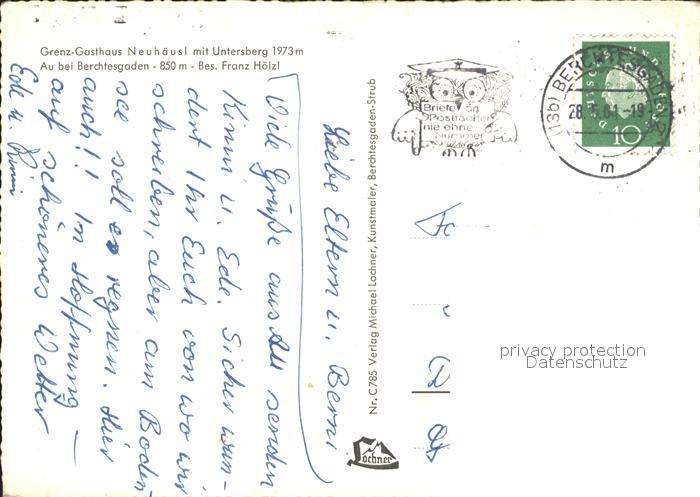 Grenz-Gasthaus Neuhäusl mit Untersberg 1973 m
Au bei Berchtesgaden - 850 m - Bes. Franz Hölzl
Liebe Eltern u. Berni
Viele Grüße aus Au senden
Kinni u. Ede. Sicher wun-
dert Ihr Euch von wo wir
schreiben, aber am Boden-
see soll es regnen. Hier
auch!! In Hoffnung –
auf schöneres Wetter
Ede u.
Nr. C785 Verlag Michael Lochner, Kunstmaler, Berchtesgaden-Strub
Lochner
Briefe an
Postfächer
nie ohne
Nummer
(13b) BERCHTESGADEN
-19
m
10
privacy protection
Datenschutz